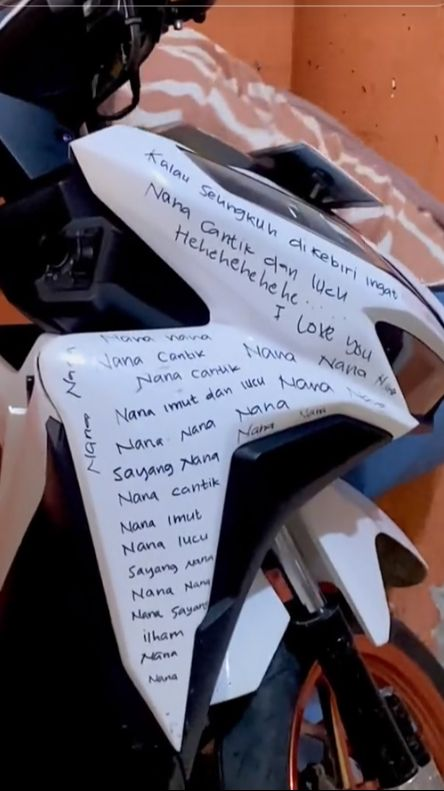 Kalau Seungkuh dikebiri ingat
Nana Cantik dan lucu
Hehehehehehe.....
I Love you
Nana Nana
Nana nana
Nana Cantik
Nana
Nana Cantik
Nana imut dan lucu Nana Nana
Nana Nana Nana
Nana Nana
Sayang Nana
Nana cantik
Nana Imut
Nana lucu
Sayang Nana
Nana Nana
Nana Sayang
ilham
Nana
Nana
Nana
Nana